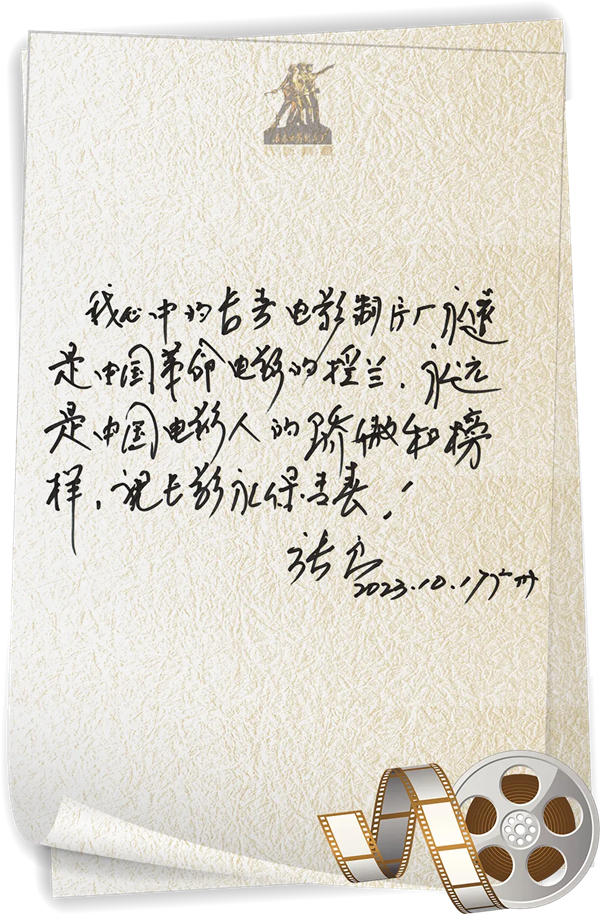 长春电影制片厂
我心中的长春电影制片厂永远
是中国革命电影的摇兰，永远
是中国电影人的骄傲和榜
样，祝长影永保青春！
张良
2023.10.17广州